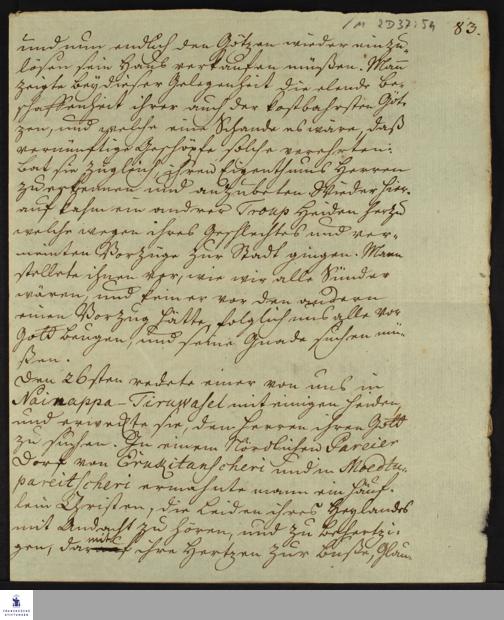 1 M 2D37:54
83.
und nun endlich den Götzen wieder einzu-
lösen sein Haus verkaufen müßen. Mann
zeigte bey dieser Gelegenheit die elende Be-
schaffenheit ihrer auch der kostbahrsten Göt-
zen, und welche eine Schande es wäre, daß
vernünftige Geschöpfe solche verehrten:
bat sie zugleich, ihren Eigenthums Herren
zu erkennen und anzubeten. Wieder hier-
auf kahm ein andrer Troup Heiden herzu
welche wegen ihres Geschlechtes und ver-
meinten Vorzüge zur Stadt gingen. Mann
stellete ihnen vor, wie wir alle Sünder
wären, und keiner vor den andern
einen Vorzug hätte, folglich uns alle vor
Gott beugen, und seine Gnade suchen mü-
ßen.
Den 26sten redete einer von uns in
Nainappa-Tiruwasel mit einigen Heiden,
und erweckte sie, den Herren ihren Gott
zu suchen. In einem Nördlichen Pareier
Dorf von Erukitanscheri und in Moedtu-
pareitscheri ermahnte mann ein Häuf-
lein Christen, die Leiden ihres Heylandes
mit Andacht zu hören, und zu behertzi-
gen, damit ihre Hertzen zur Buße, Glau-
FRANCKESCHE
STIFTUNGEN